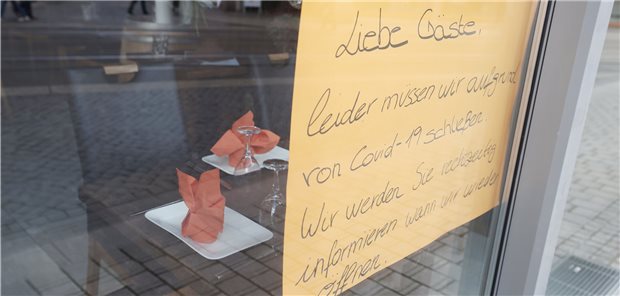 Liebe Gäste,
leider müssen wir aufgrund
von Covid-19 schließen.
Wir werden Sie rechtzeitig
informieren wann wir wieder
öffnen.